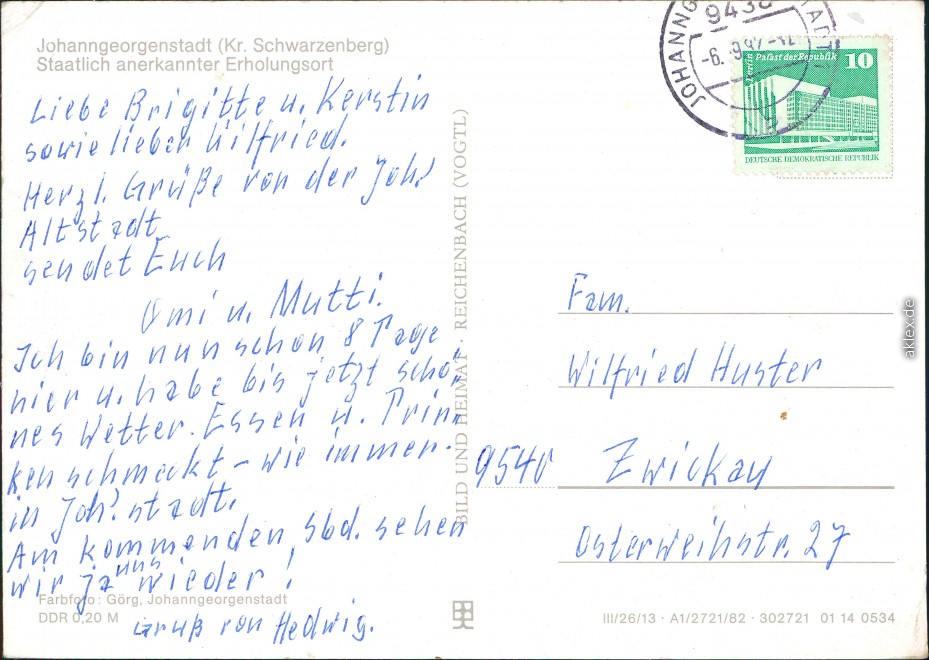 Johanngeorgenstadt (Kr. Schwarzenberg)
Staatlich anerkannter Erholungsort
Liebe Brigitte u. Kerstin
sowie lieber Wilfried.
Herzl. Grüße von der Joh.
Altstadt
sendet Euch
Omi u. Mutti.
Ich bin nun schon 8 Tage
hier u. habe bis jetzt schö„
nes Wetter. Essen u. Trin„
ken schmeckt – wie immer.
in Joh. stadt.
Am kommenden Sbd. sehen
wir ja uns wieder!
Gruß von Hedwig.
Farbfoto: Görg, Johanngeorgenstadt
DDR 0,20 M
BILD UND HEIMAT · REICHENBACH (VOGTL)
Berlin
Palast der Republik
10
DEUTSCHE DEMOKRATISCHE REPUBLIK
Fam.
Wilfried Huster
9540 Zwickau
Osterweihstr. 27
III/26/13 · A1/2721/82 · 302721 01 14 0534
aklex.de